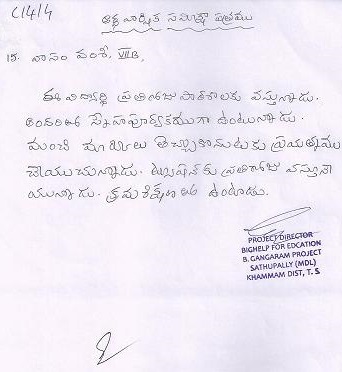 C1414
అర్థ వార్షిక సమీక్షా పత్రము
15. వాసం వంశీ, VII B,
ఈ విద్యార్థి ప్రతిరోజు పాఠశాలకు వస్తున్నాడు.
అందరితో స్నేహపూర్వకముగా ఉంటున్నాడు.
మంచి మార్కులు తెచ్చుకొనుటకు ప్రయత్నము
చేయుచున్నాడు. ట్యూషన్ కు ప్రతిరోజు వస్తునా
యున్నాడు. క్రమశిక్షణతో ఉంటాడు.
PROJECT DIRECTOR
BIGHELP FOR EDCATION
B. GANGARAM PROJECT
SATHUPALLY (MDL)
KHAMMAM DIST, T. S.